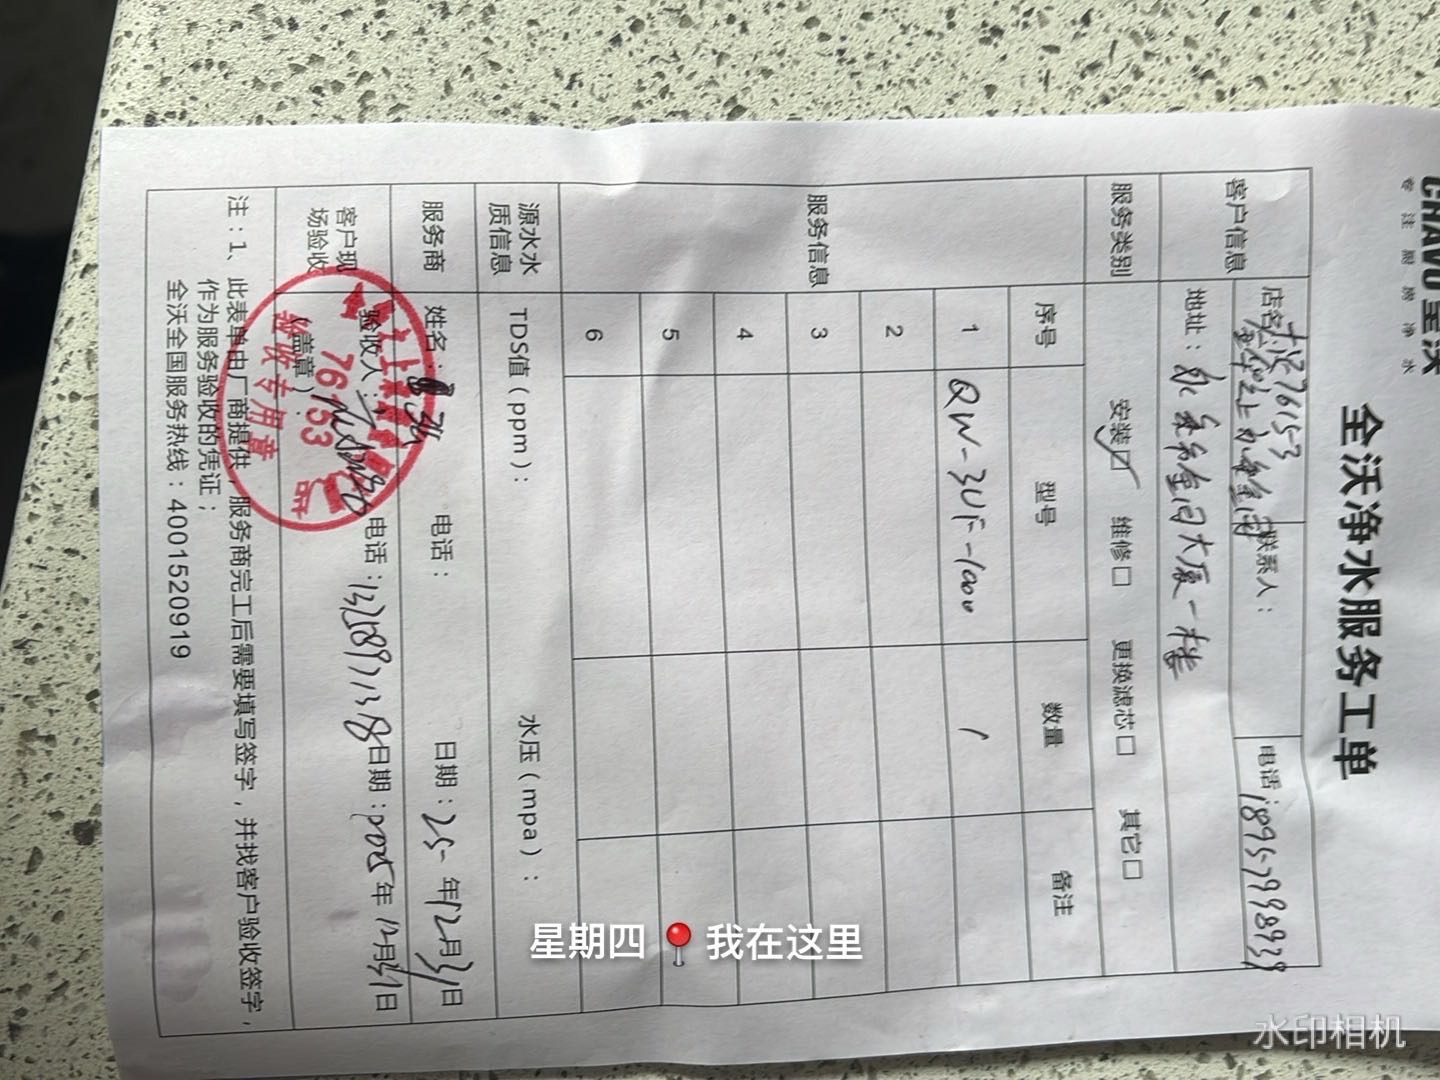 CHAVO 全沃
专注厨房净水
全沃净水服务工单
客户信息 店名: 76153 联系人: 电话: 18957998939
地址: 大厦一楼
服务类别 安装☑ 维修□ 更换滤芯□ 其它□
服务信息 序号 型号 数量 备注
1 QW-3UF-1000 1
2
3
4
5
6
源水水质信息 TDS值(ppm): 水压(mpa):
服务商 姓名: 电话: 日期: 25年12月31日
客户现场验收 验收人: 电话: 日期: 2025年12月31日
(盖章):
76153
验收专用章
注:1、此表单由厂商提供,服务商完工后需要填写签字,并找客户验收签字,
作为服务验收的凭证;
全沃全国服务热线:4001520919
星期四 📍 我在这里
水印相机